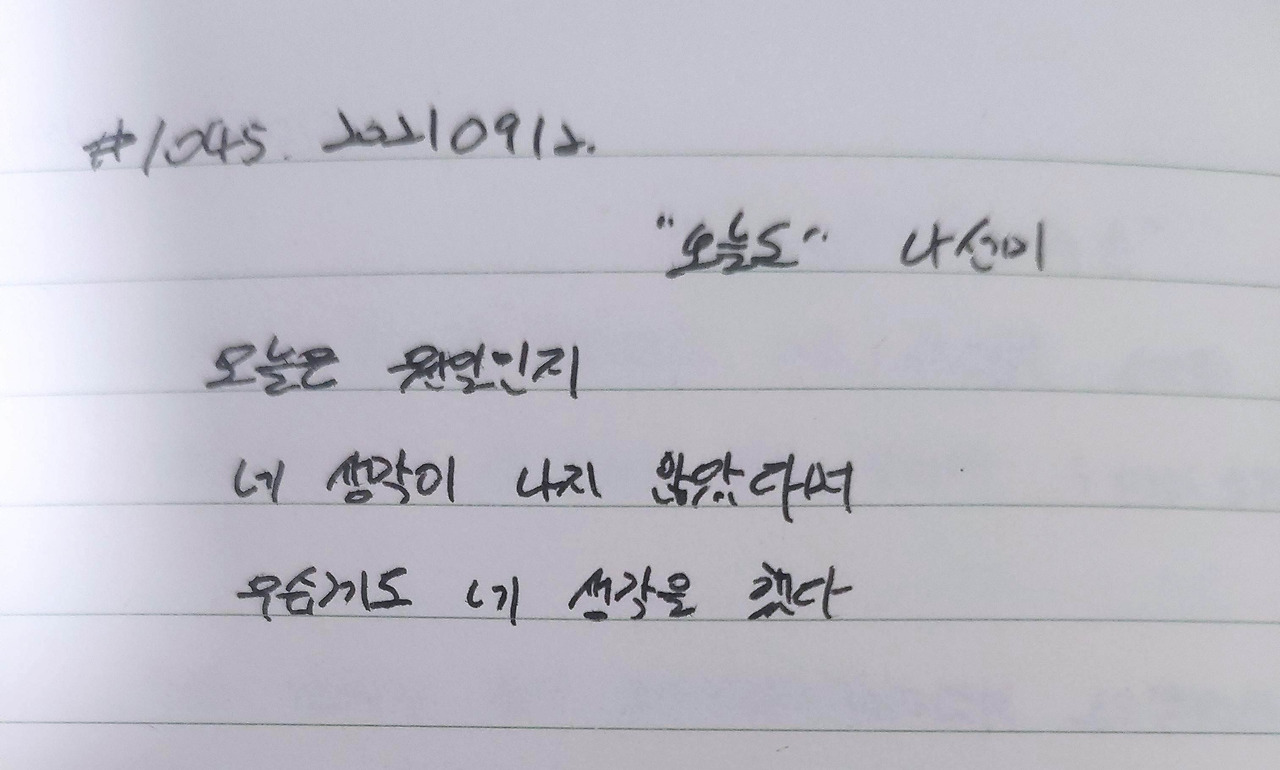 #1045. 20210912.
"오늘도" 나선미
오늘은 웬일인지
네 생각이 나지 않았다며
우습게도 네 생각을 했다